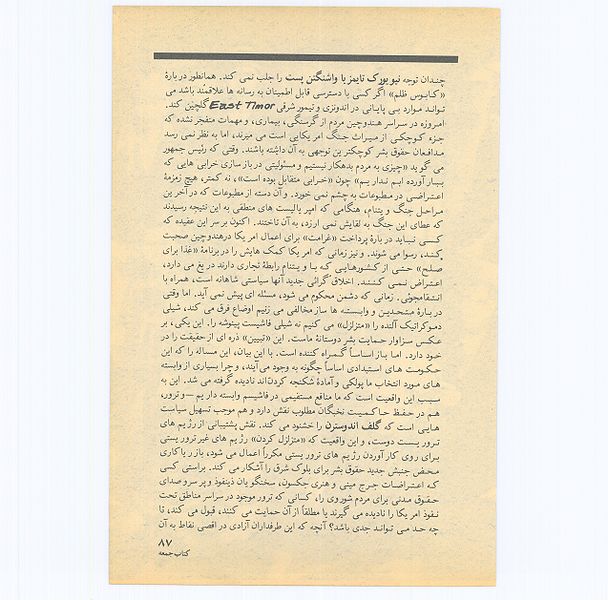 چندان توجه نیویورک تایمز یا واشنگتن پست را جلب نمی کند. همانطور دربارهٔ
«کابوس ظلم» اگر کسی با دسترسی قابل اطمینان به رسانه ها علاقمند باشد می
تواند موارد بی پایانی در اندونزی و تیمور شرقی East Timor گلچین کند.
امروزه در سراسر هندوچین مردم از گرسنگی، بیماری، و مهمات منفجر نشده که
جزء کوچکی از میراث جنگ امریکایی است می میرند، اما به نظر نمی رسد
مدافعان حقوق بشر کوچکترین توجهی به آن داشته باشند. وقتی که رئیس جمهور
می گوید «چیزی به مردم بدهکار نیستیم و مسئولیتی در بازسازی خرابی هایی که
ببار آورده ایم نداریم» چون «خرابی متقابل بوده است»، نه کمتر، هیچ زمزمهٔ
اعتراضی در مطبوعات به چشم نمی خورد. و آن دسته از مطبوعات که در آخرین
مراحل جنگ ویتنام، هنگامی که امپریالیست های منطقی به این نتیجه رسیدند
که عطای این جنگ به لقایش نمی ارزد، به آن تاختند. اکنون بر سر این عقیده که
کسی نباید در بارهٔ پرداخت «غرامت» برای اعمال امریکا درهندوچین صحبت
کند، رسوا می شوند. و نیز زمانی که امریکا کمک هایش را در برنامهٔ «غذا برای
صلح» حتی از کشورهایی که با ویتنام رابطهٔ تجاری دارند دریغ می دارد،
اعتراض نمی کنند. اخلاق گرائی جدید آنها سیاستی شاهانه است، همراه با
انتقامجوئی. زمانی که دشمن محکوم می شود، مسئله ای پیش نمی آید. اما وقتی
در بارهٔ متحدین و وابسته ها ساز مخالفی می زنیم اوضاع فرق می کند، شیلی
دموکراتیک آلنده را «متزلزل» می کنیم نه شیلی فاشیست پینوشه را. این یکی، بر
عکس سزاوار حمایت بشر دوستانهٔ ماست. این «تبیین» ذره ای از حقیقت را در
خود دارد. اما باز اساساً گمراه کننده است. با این بیان، این مساله را که این
حکومت های استبدادی اساساً چگونه به وجود می آیند، و چرا بسیاری از وابسته
های مورد انتخاب ما پولکی و آمادهٔ شکنجه کردن اند نادیده گرفته می شد. این به
سبب این واقعیت است که ما منافع مستقیمی در فاشیسم وابسته داریم – و ترور،
هم در حفظ حاکمیت نخبگان مطلوب نقش دارد و هم موجب تسهیل سیاست
هایی است که گلف اندوسترن را خشنود می کند. نقش پشتیبانی از رژیم های
ترور پست دوست، و این واقعیت که «متزلزل کردن» رژیم های غیر ترور پستی
برای روی کار آوردن رژیم های ترور پستی مکرراً اعمال می شود، بازریاکاری
محض جنبش جدید حقوق بشر برای بلوک شرق را آشکار می کند. براستی کسی
که اعتراضات جرج مینی و هنری جکسون، سخنگویان ذینفوذ و پر سر و صدای
حقوق مدنی برای مردم شوروی را، کسانی که ترور موجود در سراسر مناطق تحت
نفوذ امریکا را نادیده می گیرند یا مطلقاً از آن حمایت می کنند، قبول می کند، تا
چه حد می تواند جدی باشد؟ آنچه که این طرفداران آزادی در اقصی نقاط به آن
۸۷
کتاب جمعه